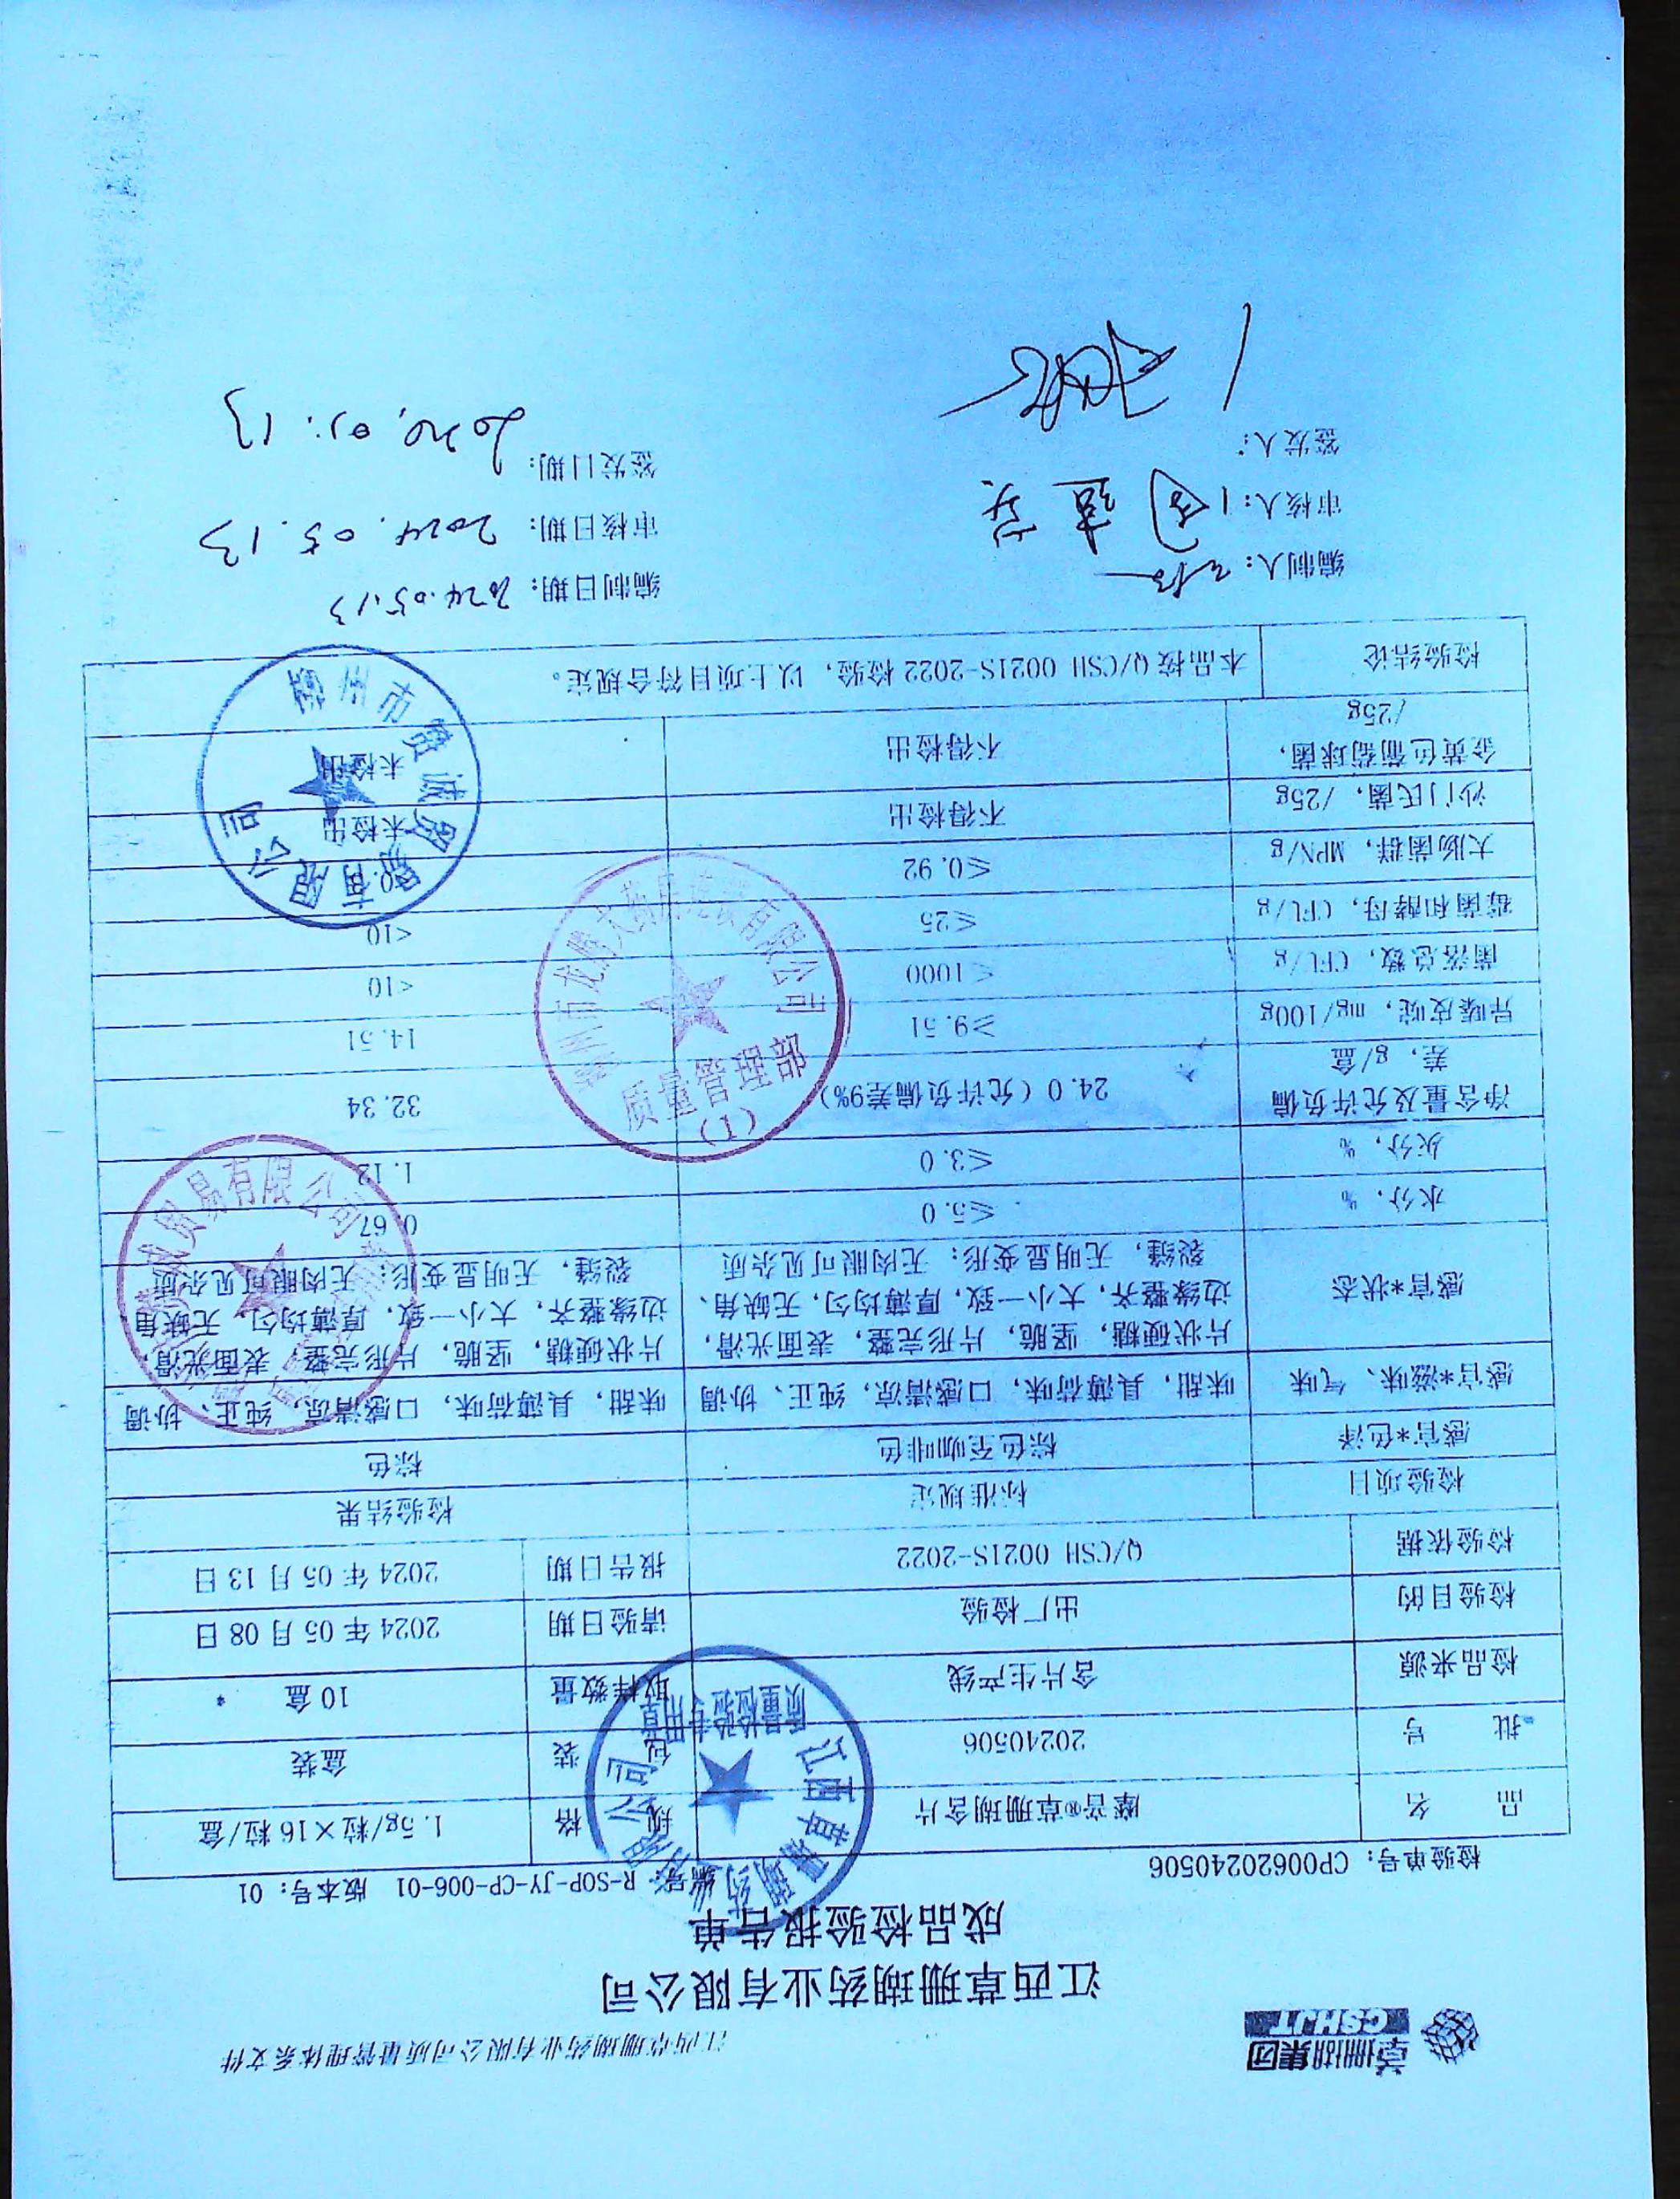 草珊瑚集团
CSHJT
江西草珊瑚药业有限公司质量管理体系文件
江西草珊瑚药业有限公司
成品检验报告单
检验单号: CP00620240506 编号: R-SOP-JY-CP-006-01 版本号: 01
品 名 摩音®草珊瑚含片 规 格 1.5g/粒×16粒/盒
批 号 20240506 包 装 盒装
检品来源 含片生产线 取样数量 10盒
检验目的 出厂检验 请验日期 2024年05月08日
检验依据 Q/CSH 0021S-2022 报告日期 2024年05月13日
检验项目 标准规定 检验结果
感官*色泽 棕色至咖啡色 棕色
感官*滋味、气味 味甜，具薄荷味，口感清凉，纯正、协调 味甜，具薄荷味，口感清凉，纯正、协调
感官*状态 片状硬糖，坚脆，片形完整，表面光滑，边缘整齐，大小一致，厚薄均匀，无缺角、裂缝，无明显变形；无肉眼可见杂质 片状硬糖，坚脆，片形完整，表面光滑，边缘整齐，大小一致，厚薄均匀，无缺角、裂缝，无明显变形；无肉眼可见杂质
水分，% ≤5.0 0.67
灰分，% ≤3.0 1.12
净含量及允许负偏差，g/盒 24.0（允许负偏差9%） 32.34
异嗪皮啶，mg/100g ≥9.51 14.51
菌落总数，CFU/g ≤1000 <10
霉菌和酵母，CFU/g ≤25 <10
大肠菌群，MPN/g ≤0.92
沙门氏菌，/25g 不得检出 未检出
金黄色葡萄球菌，/25g 不得检出 未检出
检验结论 本品按 Q/CSH 0021S-2022 检验，以上项目符合规定。
编制人: 编制日期: 2024.05.13
审核人: 审核日期: 2024.05.13
签发人: 签发日期:
江西草珊瑚药业有限公司
质量检验专用章
贸易有限公司
质量管理部
(1)
柳州市 诚贸易有限公司